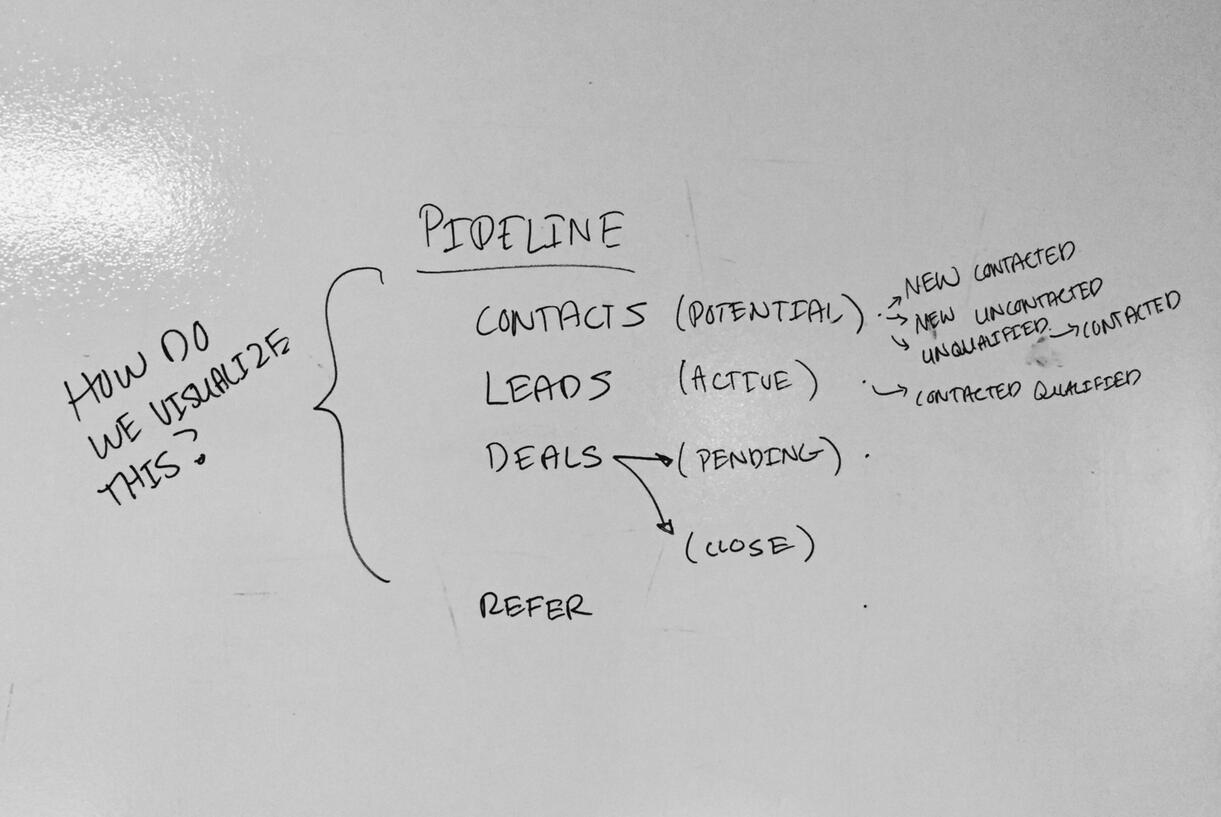 PIPELINE
HOW DO
WE VISUALIZE
THIS?
CONTACTS (POTENTIAL)
NEW CONTACTED
NEW UNCONTACTED
UNQUALIFIED → CONTACTED
LEADS (ACTIVE)
CONTACTED QUALIFIED
DEALS → (PENDING)
(CLOSE)
REFER